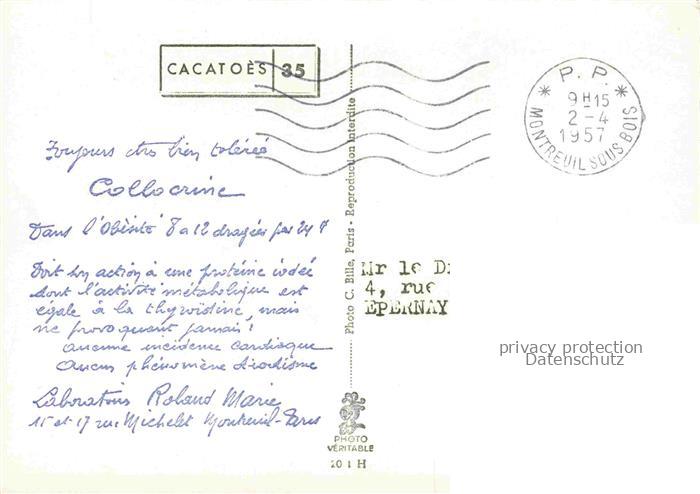 CACATOÈS 35
P. P.
9H15
2-4
1957
MONTREUIL SOUS BOIS
Toujours très bien tolérée
Collocrine
Dans l'Obésité 8 a 12 dragées par 24 h
Doit son action à une protéine iodée
dont l'activité métabolique est
egale à la thyroïdine, mais
ne provoquant jamais :
aucune incidence cardiaque
aucun phénomène d'iodisme
Laboratoires Roland Marie
15 et 17 rue Michelet Montreuil-Paris
Photo C. Bille, Paris - Reproduction interdite
Mr le D
4, rue
EPERNAY
privacy protection
Datenschutz
PHOTO
VÉRITABLE
101 H